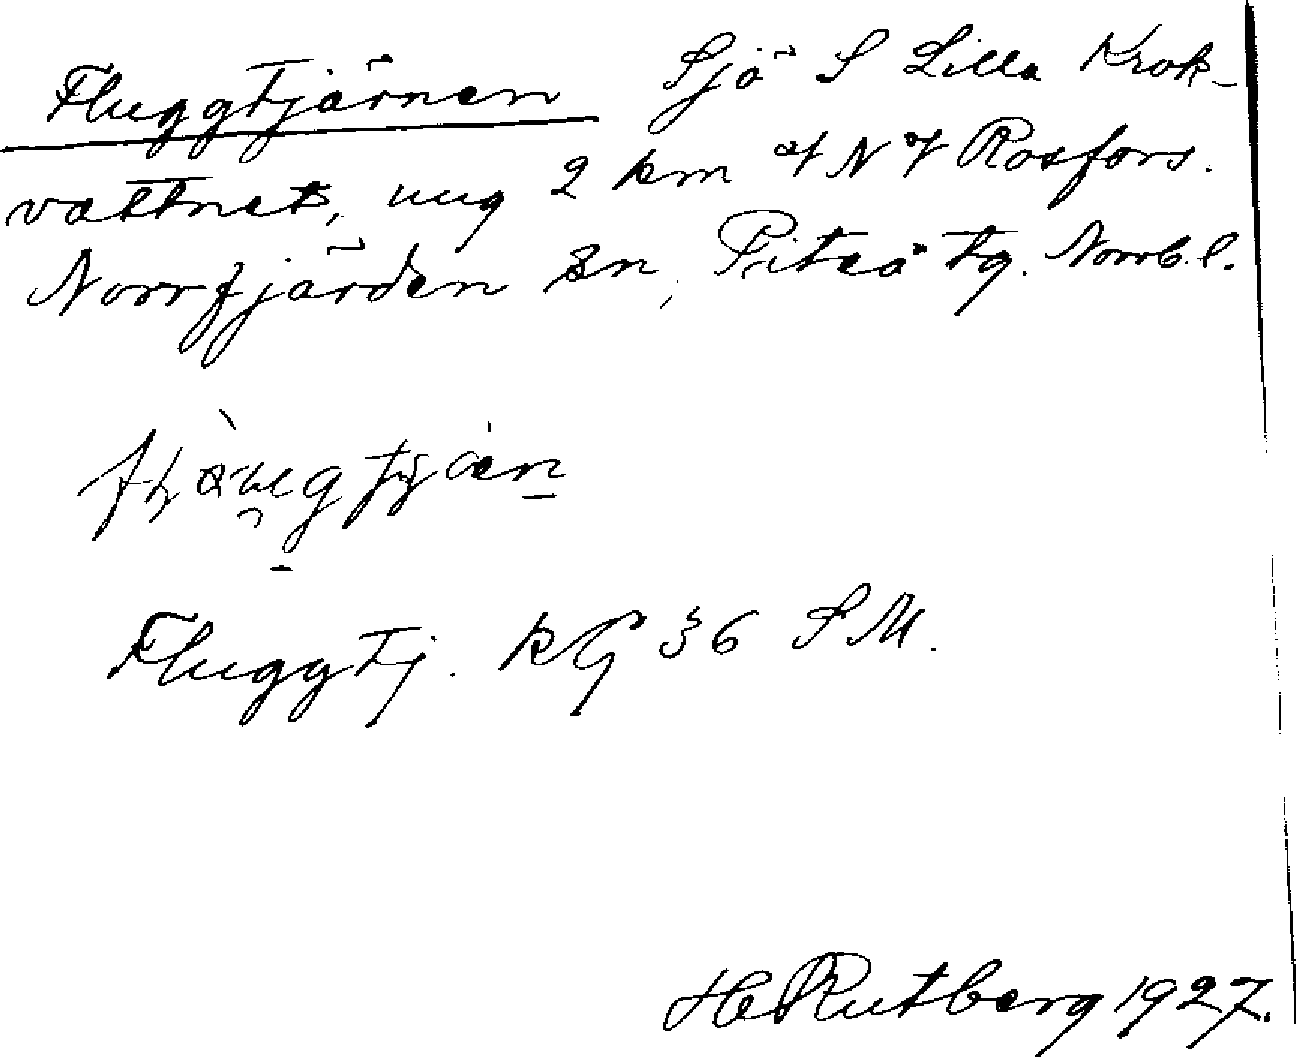 Fluggtjärnen Sjö S Lilla Krok-
vattnet, ung 2 km
Norrfjärden sn, Piteå tg. Norrb. l.
Fluggtj. kG 36 S M.
H Rutberg 1927.